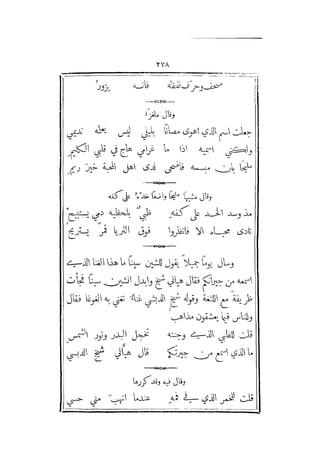 ٢٧٨
صحف وحرّف لفظه فانه يزور
وقال ملغزا
جعلت اسم الذي اهوى مصانا بليلي ليس يعلمه نديمي
ولكني اسميه اذا ما غرامي هاج في قلبي الكليم
مليحا بان مبسمه فاضحى لدى اهل المحبة خير ريم
وقال مشببا مليحا واضعا خده على كفه
مذ وسد الخد على كفه ظبي بلحظيه دمي يستبيح
نادى محياه الا فانظروا فوق الثريا قمر يستريح
وسال يوما جميلا يقول للشين سينا ما هذا الغنا الذي
اسمعه من جيرانكم فقال هياني شيخ وابدل الشين سينا فجأت
ظريفة مع اللثغة وقوله شيخ الدبشي غنا نغني به الغوغا فقال
وللناس فيما يعشقون مذاهب
قلت للظبي الذي وجنته تخجل البدر ونور الشمس
ما الذي اسمع من جيرتكم قال هياني شيخ الدبسي
وقال فيه وقد كررها
قلت للخمر الذي في فمه عندما انهب مني حسي